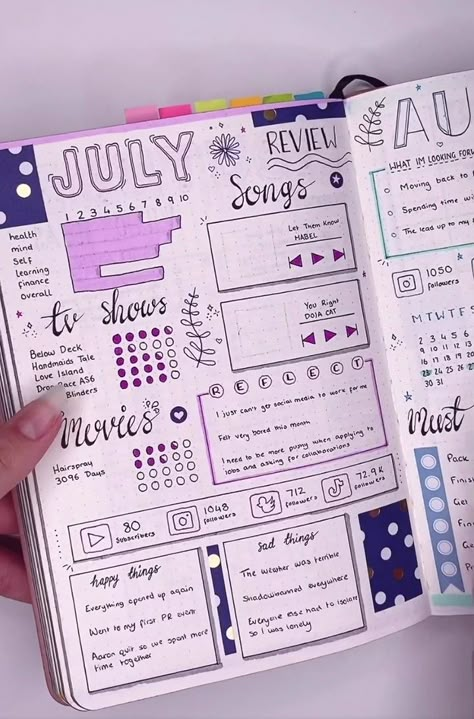 JULY
REVIEW
1 2 3 4 5 6 7 8 9 10
health
mind
self
learning
finance
overall
Songs
Let Them Know
MABEL
You Right
DOJA CAT
tv shows
Below Deck
Handmaids Tale
Love Island
Drag Race AS6
Blinders
REFLECT
I just can't get social media to work for me
Felt very bored this month
I need to be more pushy when applying to
jobs and asking for collaborations
Movies
Hairspray
3096 Days
80
subscribers
1048
followers
712
followers
72.9K
followers
happy things
Everything opened up again
Went to my first PR event
Aaron quit so we spent more
time together
sad things
The weather was terrible
Shadowbanned everywhere
Everyone else had to isolate
so I was lonely
AU
WHAT IM LOOKING FORW
Moving back to
Spending time wi
The lead up to my
1050
followers
M T W T F S
2 3 4 5 6 7
9 10 11 12 13 14
16 17 18 19 20 21
23 24 25 26 27
30 31
Must
Pack
Finish
Get
Fini
Go
Pr